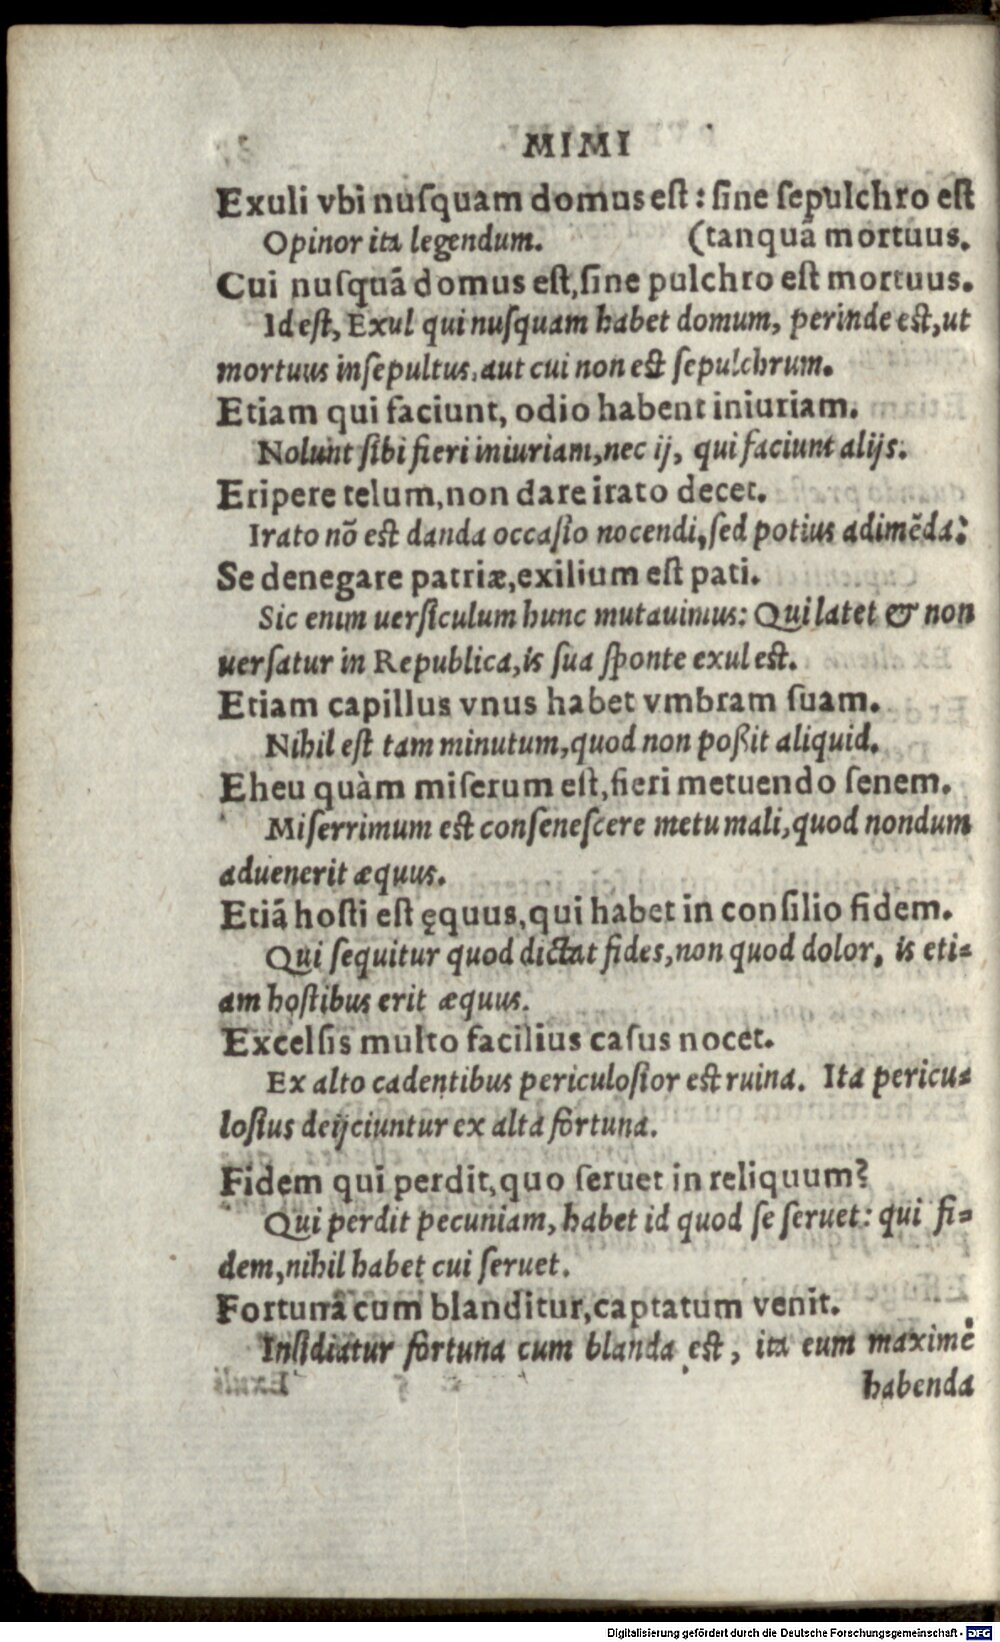 MIMI
Exuli vbi nuſquam domus eſt: ſine ſepulchro eſt
Opinor ita legendum. (tanquã mortuus.
Cui nuſquã domus eſt, ſine pulchro eſt mortuus.
Id eſt, Exul qui nuſquam habet domum, perinde eſt, ut
mortuus inſepultus, aut cui non eſt ſepulchrum.
Etiam qui faciunt, odio habent iniuriam.
Nolunt ſibi fieri iniuriam, nec ij, qui faciunt alijs.
Eripere telum, non dare irato decet.
Irato nõ eſt danda occaſio nocendi, ſed potius adimẽda:
Se denegare patriæ, exilium eſt pati.
Sic enim uerſiculum hunc mutauimus: Qui latet & non
uerſatur in Republica, is ſua ſponte exul eſt.
Etiam capillus vnus habet vmbram ſuam.
Nihil eſt tam minutum, quod non poßit aliquid.
Eheu quàm miſerum eſt, fieri metuendo ſenem.
Miſerrimum eſt conſeneſcere metu mali, quod nondum
aduenerit æquus.
Etiã hoſti eſt ęquus, qui habet in conſilio fidem.
Qui ſequitur quod dictat fides, non quod dolor, is eti⸗
am hoſtibus erit æquus.
Excelſis multo facilius caſus nocet.
Ex alto cadentibus periculoſior eſt ruina. Ita pericu⸗
loſius deijciuntur ex alta fortuna.
Fidem qui perdit, quo ſeruet in reliquum?
Qui perdit pecuniam, habet id quod ſe ſeruet: qui fi⸗
dem, nihil habet cui ſeruet.
Fortuna cum blanditur, captatum venit.
Inſidiatur fortuna cum blanda eſt, ita eum maximè
habenda
Digitalisierung gefördert durch die Deutsche Forschungsgemeinschaft - DFG